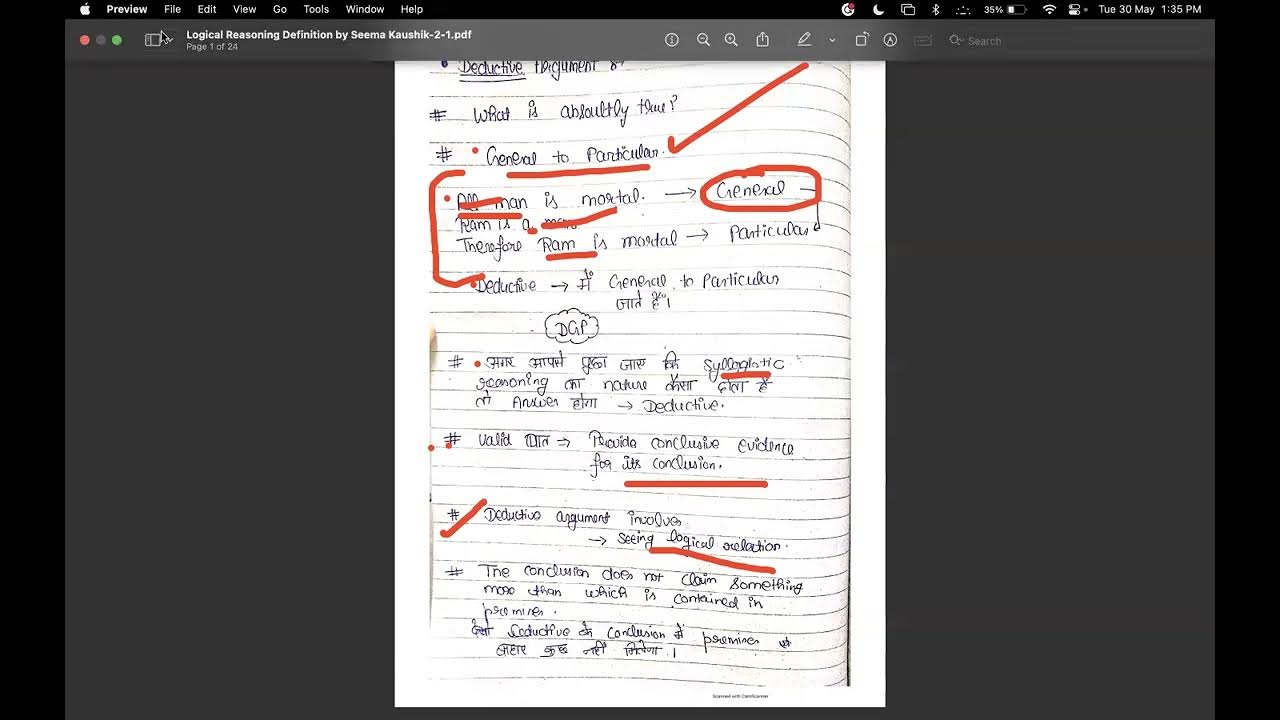 Preview File Edit View Go Tools Window Help
35% Tue 30 May 1:35 PM
Logical Reasoning Definition by Seema Kaushik-2-1.pdf
Page 1 of 24
Search
Deductive Argument
# What is absoultly true?
# • General to Particular.
• All man is mortal. → General
Ram is a man
Therefore Ram is mortal → Particular
• Deductive → में General to Particular
जाते हैं।
DGP
# • अगर आपसे पूछा जाए कि Syllogistic
reasoning का nature कैसा होता है
तो Answer होगा → Deductive.
# Valid बात ⇒ Provide conclusive evidence
for its conclusion.
# Deductive argument involves
→ Seeing logical relation.
# The conclusion does not claim something
more than which is contained in
premises.
Deductive के conclusion में premises
बाहर कुछ नहीं मिलेगा।
Scanned with CamScanner